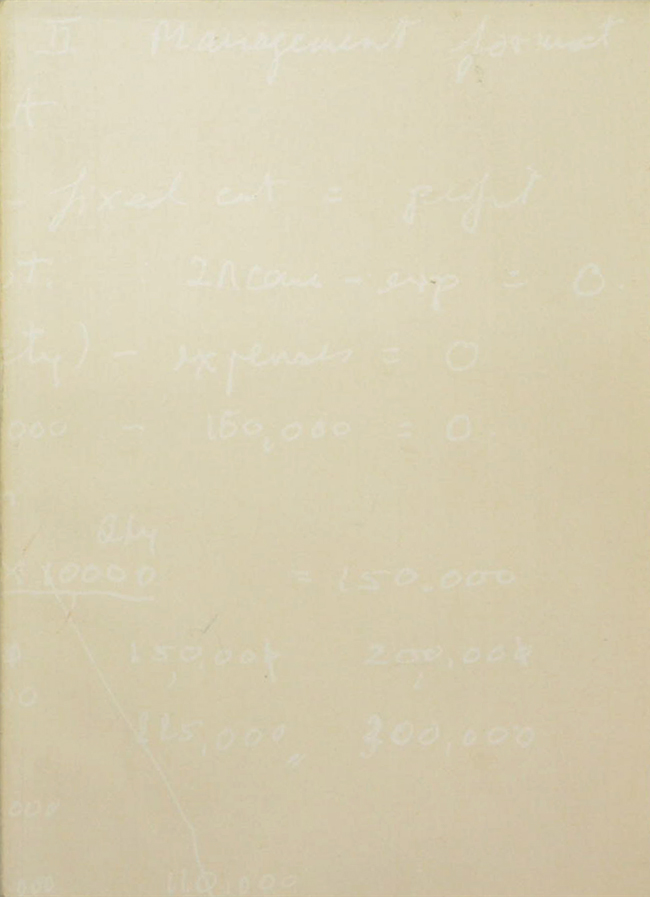 II Management format
- fixed cost = profit
- exp = 0
) - expenses = 0
000 - 150,000 = 0
Qty
x 10000 = 150,000
150,000 200,000
00
225,000 300,000
000
000 110,000